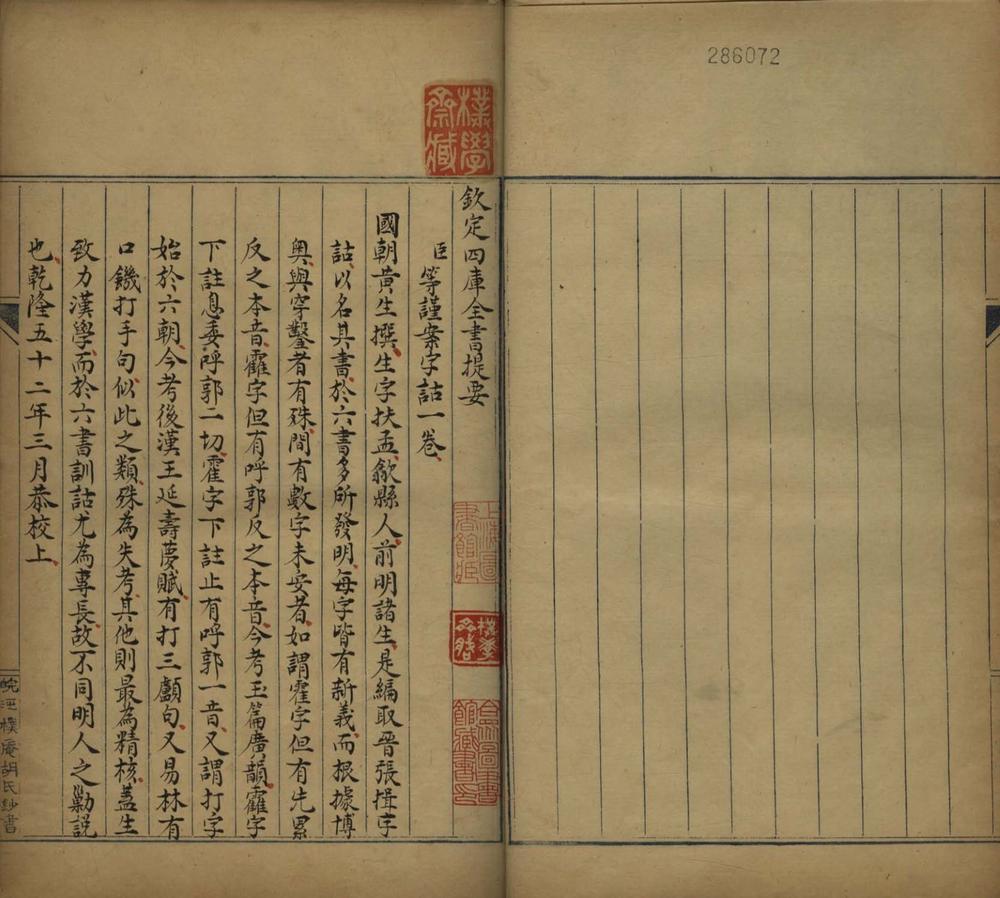 286072
樸學齋臧
欽定四庫全書提要
臣等謹案字詁一卷
國朝黃生撰生字扶孟歙縣人前明諸生是編取晉張揖字
詁以名其書於六書多所發明每字皆有新義而根據博
奧與穿鑿者有殊間有數字未安者如謂霍字但有先累
反之本音靃字但有呼郭反之本音今考玉篇廣韻靃字
下註息委呼郭二切霍字下註止有呼郭一音又謂打字
始於六朝今考後漢王延壽夢賦有打三顱句又易林有
口饑打手句似此之類殊為失考其他則最為精核蓋生
致力漢學而於六書訓詁尤為專長故不同明人之勦說
也乾隆五十二年三月恭校上
上海圖書館臧
合眾圖書館臧書之印
樸庵胡氏鈔書